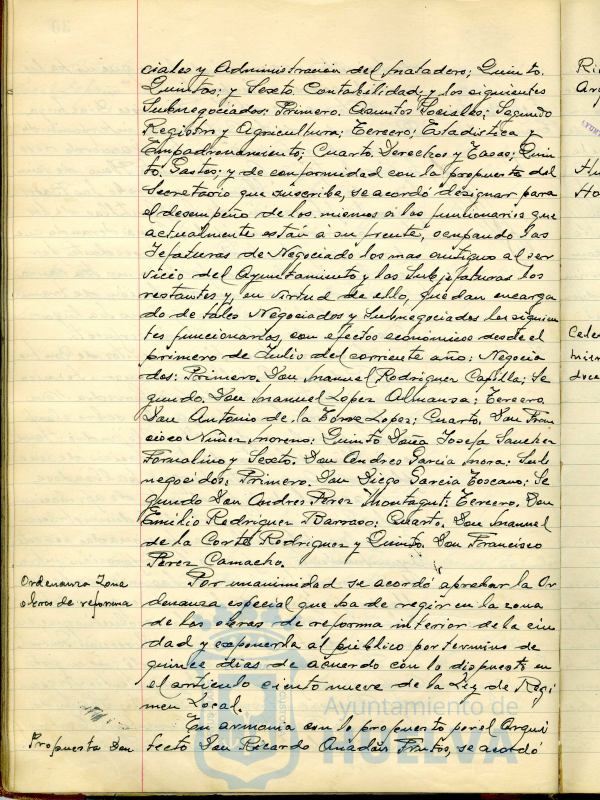 ciales y Administración del Matadero; Quinto.
Quintas; y Sexto Contabilidad, y los siguientes
Subnegociados: Primero. Asuntos Sociales; Segundo
Registro y Agricultura; Tercero; Estadistica y
Empadronamiento; Cuarto. Derechos y Tasas; Quin
to. Gastos; y de conformidad con la propuesta del
Secretario que suscribe, se acordó designar para
el desempeño de los mismos a los funcionarios que
actualmente están a su frente, ocupando las
Jefaturas de Negociado los mas antiguo al ser
vicio del Ayuntamiento y las Subjefaturas los
restantes y, en virtud de ello, quedan encarga
do de tales Negociados y Subnegociados los siguien
tes funcionarios, con efectos economicos desde el
primero de Julio del corriente año: Negocia
dos: Primero. Don Manuel Rodriguez Capilla; Se
gundo. Don Manuel Lopez Almansa; Tercero.
Don Antonio de la Torre Lopez; Cuarto. Don Fran
cisco Nuñez Moreno; Quinto Doña Josefa Sanchez
Fornalino y Sexto. Don Andres Garcia Mora: Sub
negociados: Primero. Don Diego Garcia Toscano; Se
gundo Don Andres Perez Montagut: Tercero. Don
Emilio Rodriguez Barroso; Cuarto. Don Manuel
de la Corte Rodriguez y Quinto. Don Francisco
Perez Camacho.
Ordenanza Zona
obras de reforma
Por unanimidad se acordó aprobar la Or
denanza especial que ha de regir en la zona
de las obras de reforma interior de la ciu
dad y exponerla al público por termino de
quince dias de acuerdo con lo dispuesto en
el articulo ciento nueve de la Ley de Regi
men Local.
Propuesta Don
En armonia con lo propuesto por el Arqui
tecto Don Ricardo Anadón Frutos, se acordó
Ayuntamiento de
HUELVA